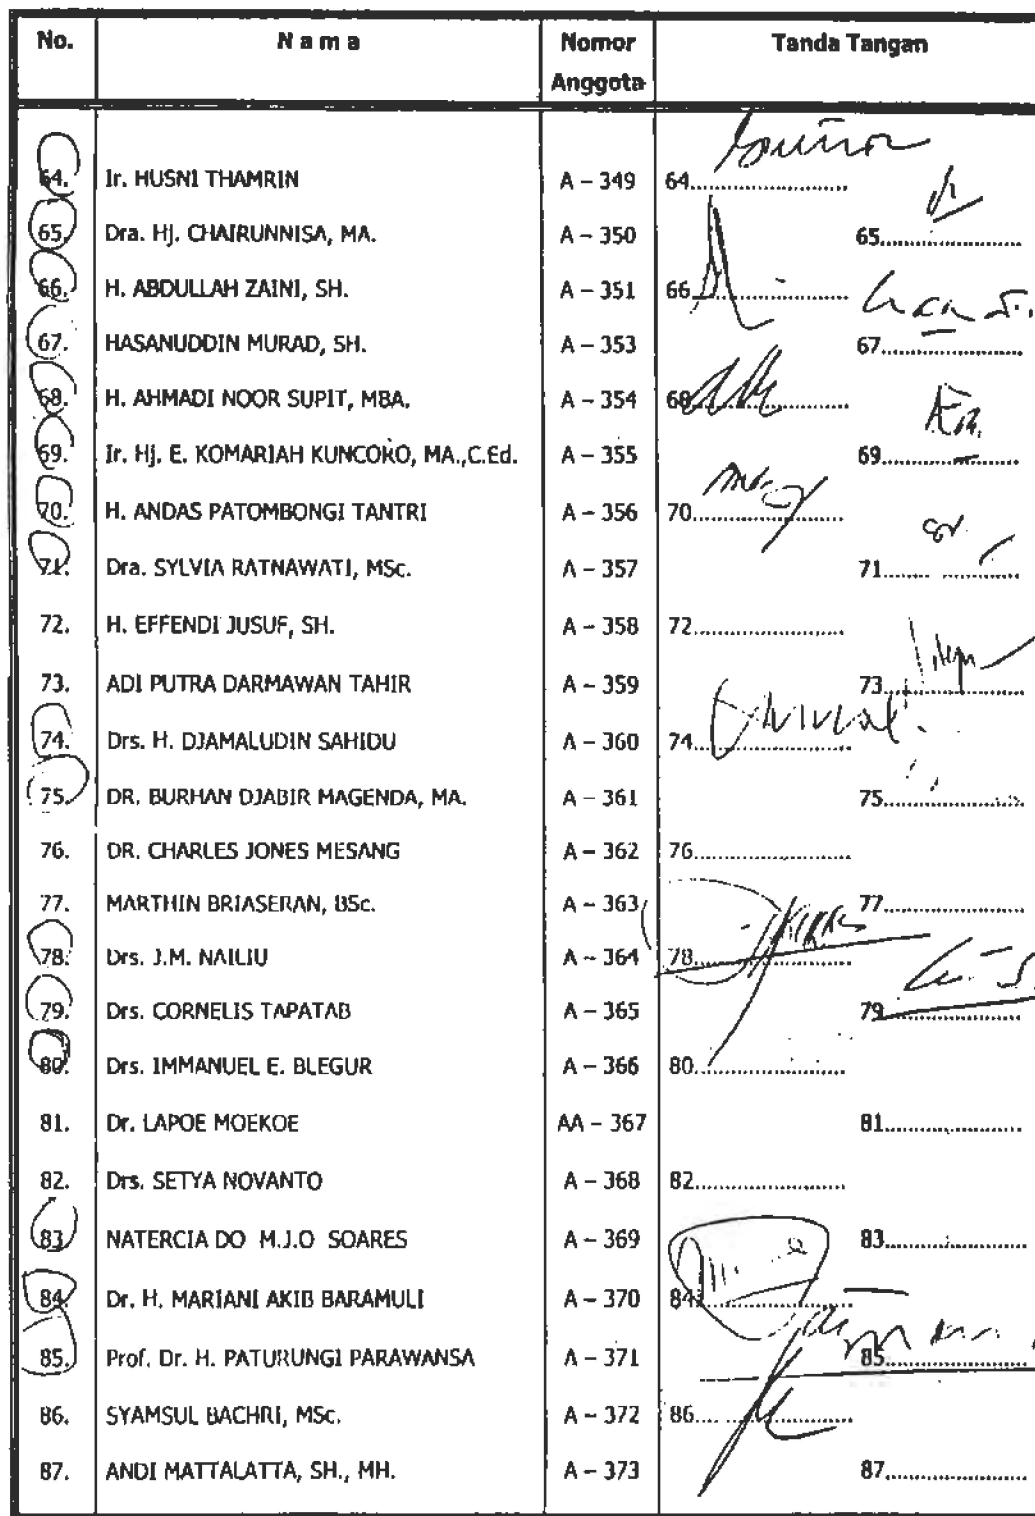 No. N a m a Nomor Anggota Tanda Tangan
64. Ir. HUSNI THAMRIN A – 349 64
65. Dra. Hj. CHAIRUNNISA, MA. A – 350 65
66. H. ABDULLAH ZAINI, SH. A – 351 66
67. HASANUDDIN MURAD, SH. A – 353 67
68. H. AHMADI NOOR SUPIT, MBA. A – 354 68
69. Ir. Hj. E. KOMARIAH KUNCORO, MA.,C.Ed. A – 355 69
70. H. ANDAS PATOMBONGI TANTRI A – 356 70
71. Dra. SYLVIA RATNAWATI, MSc. A – 357 71
72. H. EFFENDI JUSUF, SH. A – 358 72
73. ADI PUTRA DARMAWAN TAHIR A – 359 73
74. Drs. H. DJAMALUDIN SAHIDU A – 360 74
75. DR. BURHAN DJABIR MAGENDA, MA. A – 361 75
76. DR. CHARLES JONES MESANG A – 362 76
77. MARTHIN BRIASERAN, BSc. A – 363 77
78. Drs. J.M. NAILIU A – 364 78
79. Drs. CORNELIS TAPATAB A – 365 79
80. Drs. IMMANUEL E. BLEGUR A – 366 80
81. Dr. LAPOE MOEKOE AA – 367 81
82. Drs. SETYA NOVANTO A – 368 82
83. NATERCIA DO M.J.O SOARES A – 369 83
84. Dr. H. MARIANI AKIB BARAMULI A – 370 84
85. Prof. Dr. H. PATURUNGI PARAWANSA A – 371 85
86. SYAMSUL BACHRI, MSc. A – 372 86
87. ANDI MATTALATTA, SH., MH. A – 373 87